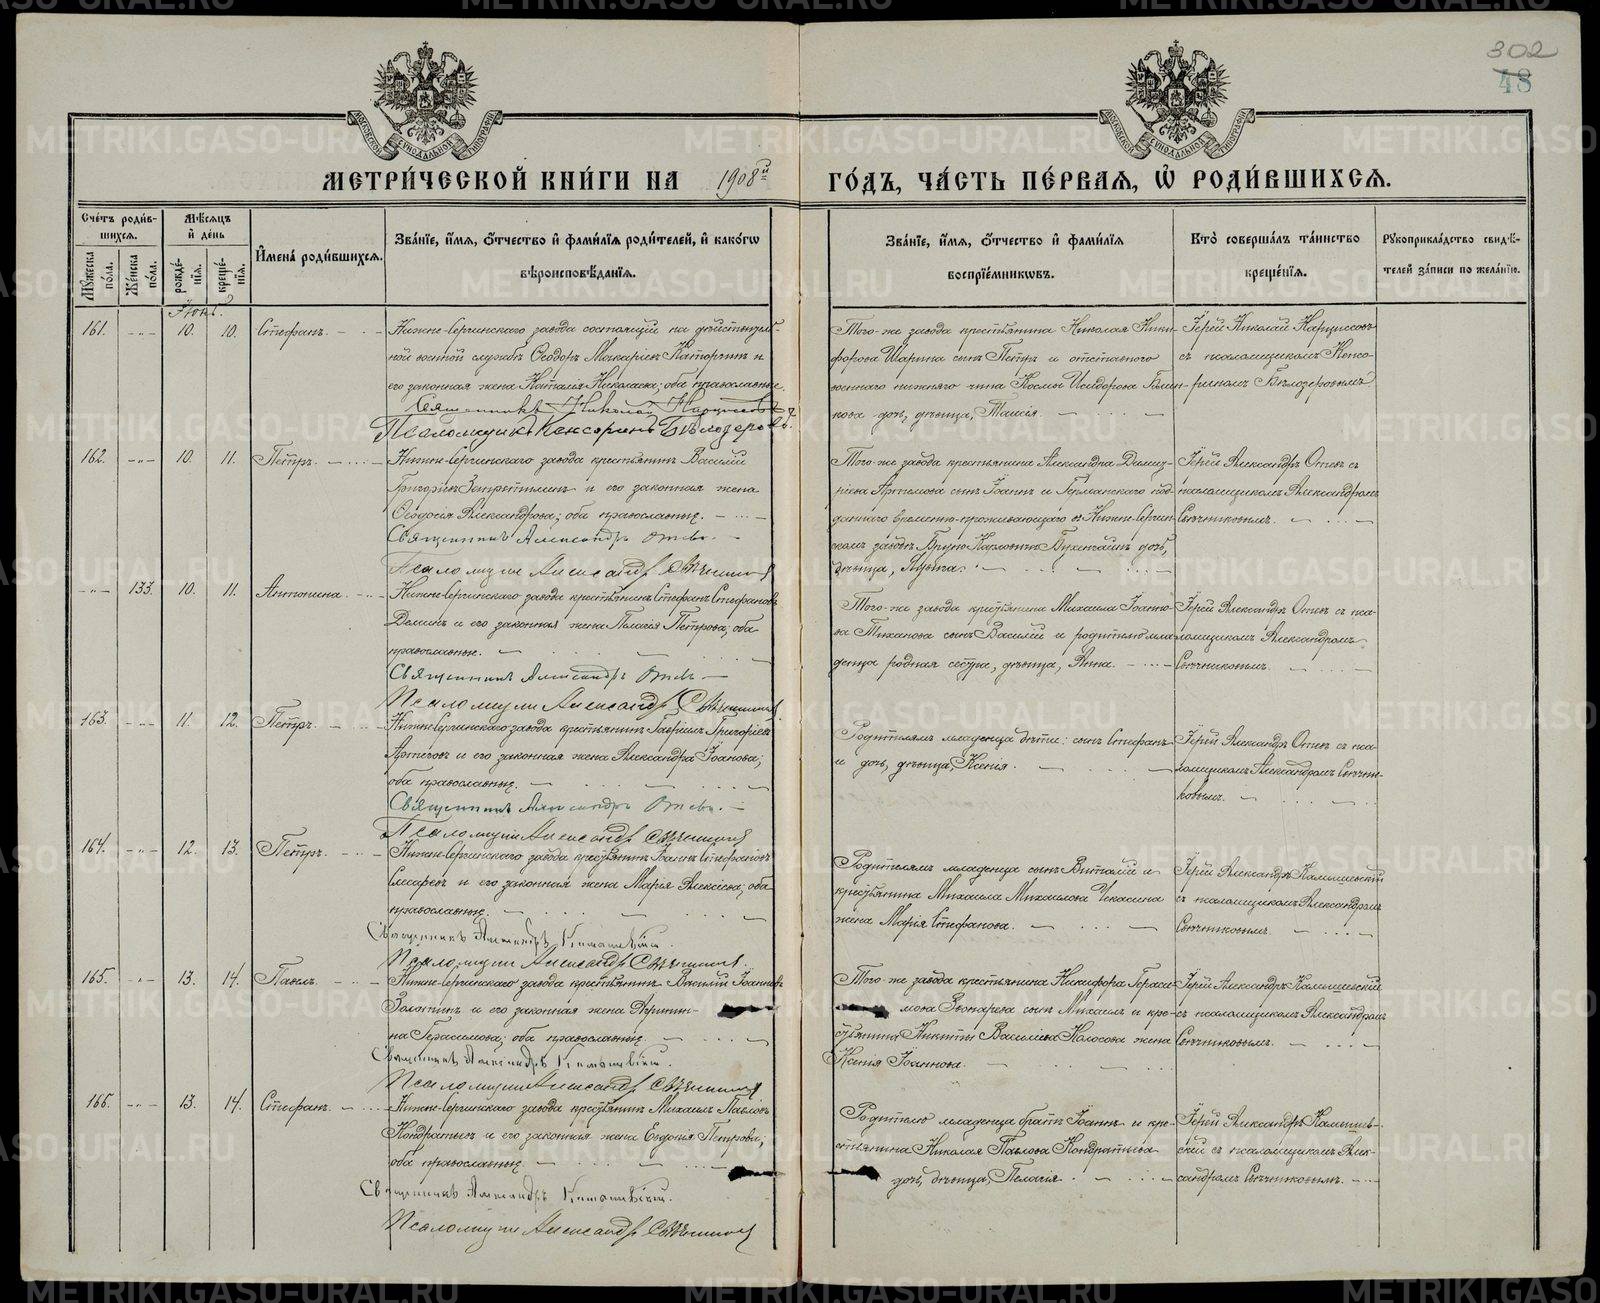 302
48
МЕТРИ́ЧЕСКОЙ КНИ́ГИ НА 1908й ГО́ДЪ, ЧА́СТЬ ПЕ́РВАЯ, Ѡ РОДИ́ВШИХСЯ.
Сче́тъ роди́вшихся.
Мꙋжеска по́ла.
Же́нска по́ла.
Мѣ́сяцъ и де́нь
рожде́нїя.
креще́нїя.
Имена̀ роди́вшихся.
Зва́нїе, и́мя, о́тчество и фами́лїя роди́телей, и како́гѡ
вѣроисповѣ́данїя.
Зва́нїе, и́мя, о́тчество и фами́лїя
воспрїе́мниковъ.
Кто̀ соверша́лъ та́инство
креще́нїя.
Рꙋкоприкла́дство свидѣ́телей за́писи по жела́нїю.
Іюнь.
161. 10. 10. Стефанъ.
Нижне-Сергинскаго завода состоящій на дѣйствитель-
ной военной службѣ Ѳеодоръ Макаріевъ Каторгинъ и
его законная жена Наталія Николаева; оба православные.
Священникъ Николай Нарциссовъ
Псаломщикъ Кенсоринъ Бѣлозеровъ.
Того-же завода крестьянина Николая Ники-
форова Шарина сынъ Петръ и отставного
военнаго нижняго чина Космы Исидорова
дочь, дѣвица, Таисія.
Іерей Николай Нарциссовъ
съ псаломщикомъ Кенсо-
риномъ Бѣлозеровымъ
162. 10. 11. Петръ.
Нижне-Сергинскаго завода крестьянинъ Василій
Григоріевъ и его законная жена
Ѳеодосія Александрова; оба православные.
Священникъ Александръ Отевъ.
Псаломщикъ Александръ Свѣчниковъ
Того-же завода крестьянина Александра Димит-
ріева Артемова сынъ Іоаннъ и Германскаго под-
даннаго временно-проживающаго въ Нижне-Сергин-
скомъ заводѣ Бруно Карловича дочь,
дѣвица,
Іерей Александръ Отевъ съ
псаломщикомъ Александромъ
Свѣчниковымъ.
133. 10. 11. Антонина.
Нижне-Сергинскаго завода крестьянинъ Стефанъ Стефановъ
Деминъ и его законная жена Пелагія Петрова; оба
православные.
Священникъ Александръ Отевъ
Псаломщикъ Александръ Свѣчниковъ
Того-же завода крестьянина Михаила Іоанно-
ва Тиханова сынъ Василій и родителю мла-
денца родная сестра, дѣвица, Анна.
Іерей Александръ Отевъ съ пса-
ломщикомъ Александромъ
Свѣчниковымъ.
163. 11. 12. Петръ.
Нижне-Сергинскаго завода крестьянинъ Гавріилъ Григоріевъ
и его законная жена Александра Іоанова;
оба православные.
Священникъ Александръ Отевъ.
Псаломщикъ Александръ Свѣчниковъ
Родителямъ младенца дѣти: сынъ Стефанъ
и дочь, дѣвица, Ксенія.
Іерей Александръ Отевъ съ пса-
ломщикомъ Александромъ Свѣчни-
ковымъ.
164. 12. 13. Петръ.
Нижне-Сергинскаго завода крестьянинъ Іоаннъ Стефановъ
Слесаревъ и его законная жена Марія Алексіева; оба
православные.
Священникъ Александръ Камышевскій.
Псаломщикъ Александръ Свѣчниковъ.
Родителямъ младенца сынъ Виталій и
крестьянина Михаила Михаилова Чекасина
жена Марія Стефанова.
Іерей Александръ Камышевскій
съ псаломщикомъ Александромъ
Свѣчниковымъ.
165. 13. 14. Павелъ.
Нижне-Сергинскаго завода крестьянинъ Василій Іоанновъ
Золотинъ и его законная жена Агриппи-
на Герасимова; оба православные.
Священникъ Александръ Камышевскій.
Псаломщикъ Александръ Свѣчниковъ
Того-же завода крестьянина Никифора Гераси-
мова Звонарева сынъ Михаилъ и кре-
стьянина Никиты Василіева Колосова жена
Ксенія Іоаннова.
Іерей Александръ Камышевскій
съ псаломщикомъ Александромъ
Свѣчниковымъ.
166. 13. 14. Стефанъ.
Нижне-Сергинскаго завода крестьянинъ Михаилъ Павловъ
Кондратьевъ и его законная жена Евдокія Петрова;
оба православные.
Священникъ Александръ Камышевскій.
Псаломщикъ Александръ Свѣчниковъ
Родителю младенца братъ Іоаннъ и кре-
стьянина Николая Павлова Кондратьева
дочь, дѣвица, Пелагія.
Іерей Александръ Камышев-
скій съ псаломщикомъ Алек-
сандромъ Свѣчниковымъ.
METRIKI.GASO-URAL.RU